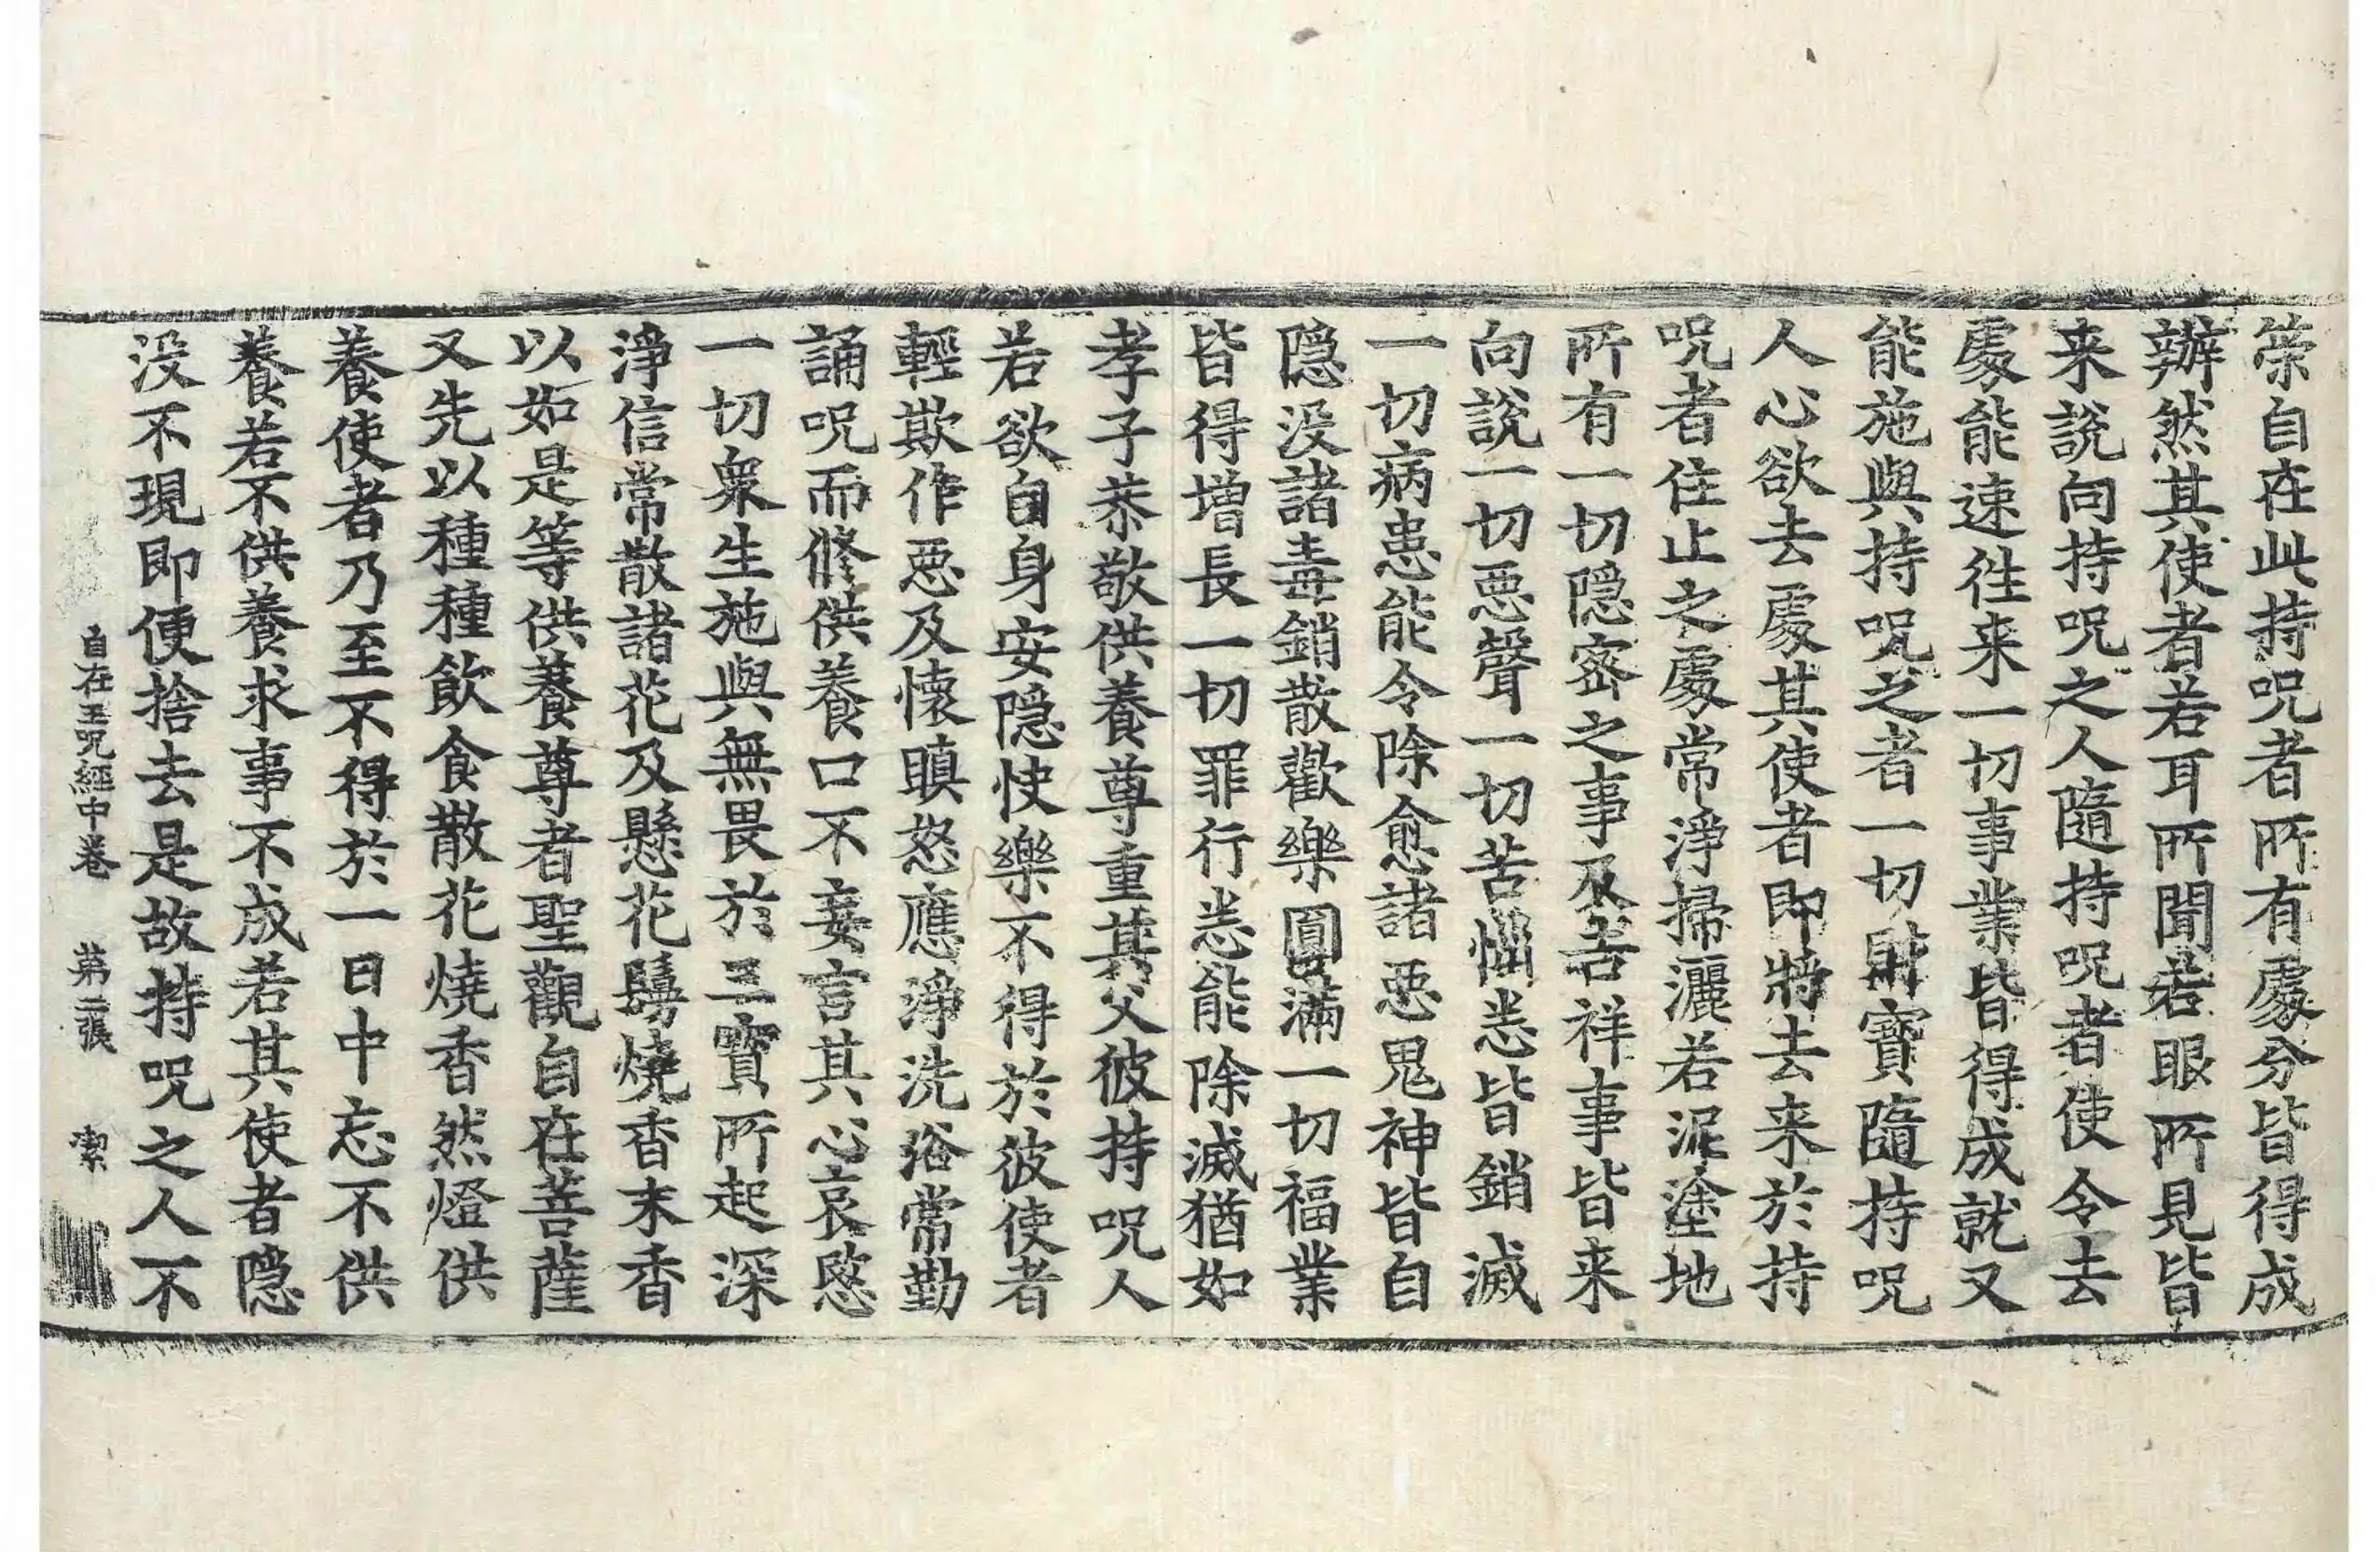 榮自在此持呪者所有處分皆得成
辦然其使者若耳所聞若眼所見皆
来說向持呪之人隨持呪者使令去
處能速徃来一切事業皆得成就又
能施與持呪之者一切財寶隨持呪
人心欲去處其使者即將去来於持
呪者住止之處常淨掃灑若泥塗地
所有一切隱密之事及吉祥事皆来
向說一切惡聲一切苦惱悉皆銷滅
一切病患能令除愈諸惡鬼神皆自
隱没諸毒銷散歡樂圓滿一切福業
皆得增長一切罪行悉能除滅猶如
孝子恭敬供養尊重其父彼持呪人
若欲自身安隱快樂不得於彼使者
輕欺作惡及懷瞋怒應淨洗浴常勤
誦呪而修供養口不妄言其心哀愍
一切衆生施與無畏於三寶所起深
淨信常散諸花及懸花鬘燒香末香
以如是等供養尊者聖觀自在菩薩
又先以種種飲食散花燒香然燈供
養使者乃至不得於一日中忘不供
養若不供養求事不成若其使者隱
没不現即便捨去是故持呪之人不
自在王呪經中卷 第二張 潔